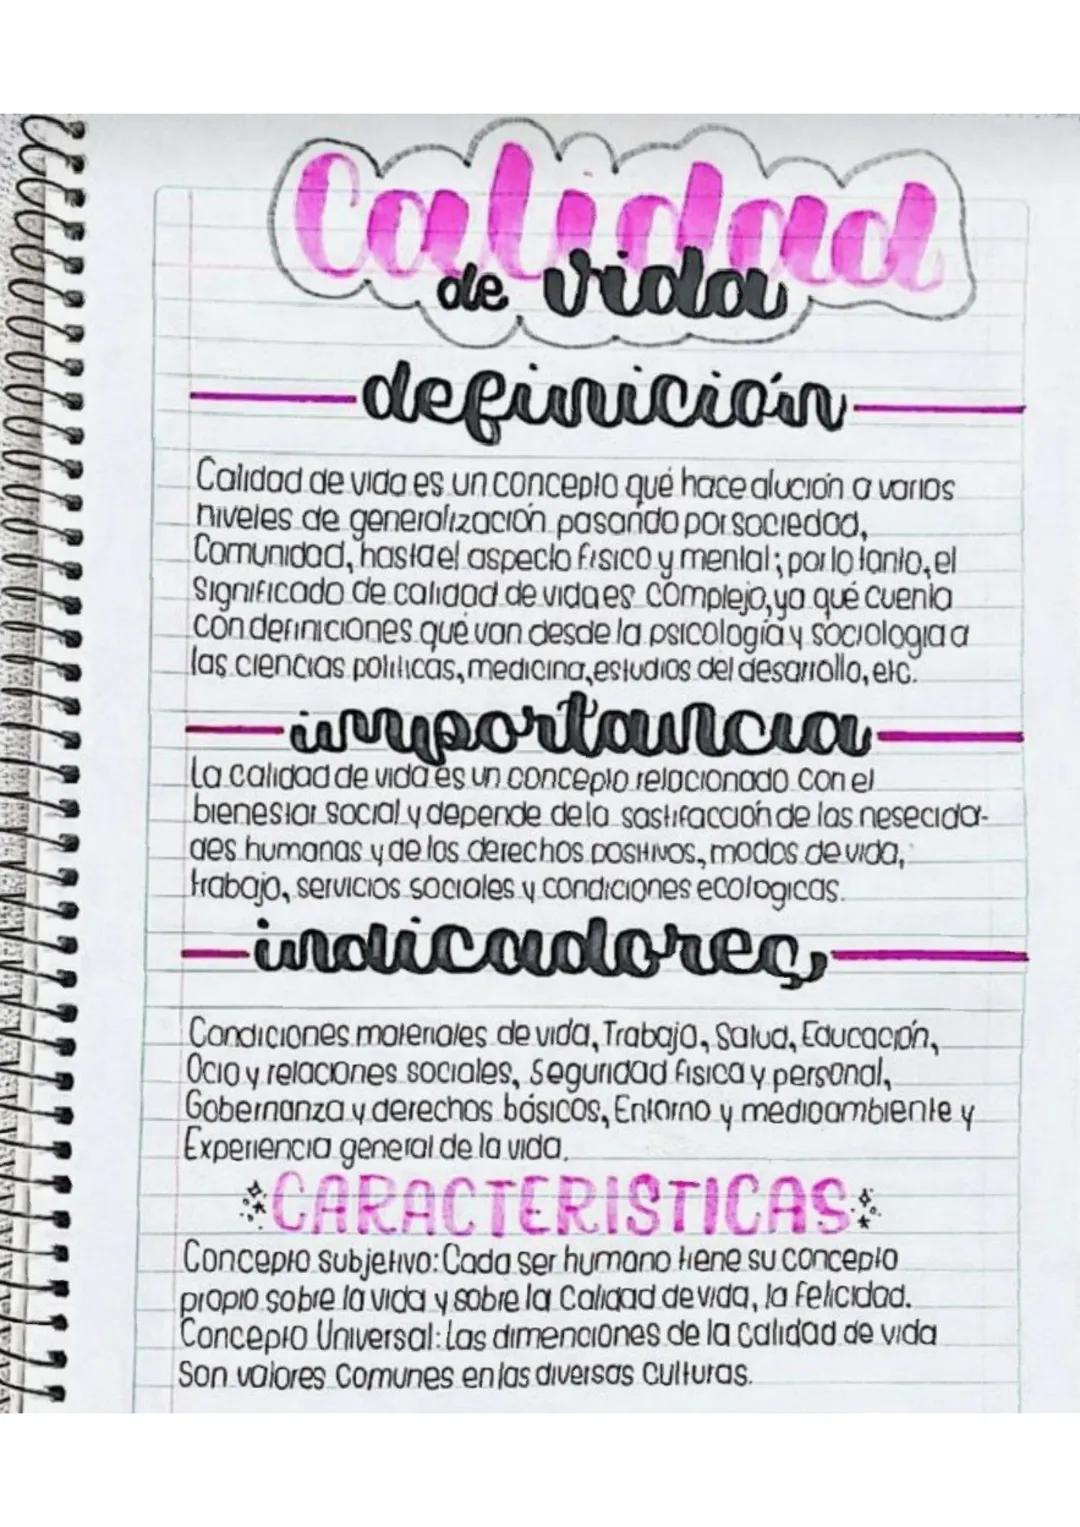 Calidad
de vida
definición
Calidad de vida es un concepto qué hace alución a varios
niveles de generalización pasando por sociedad,
Comunidad, hasta el aspecto físico y mental; por lo tanto, el
significado de calidad de vida es complejo, ya qué cuenta
con definiciones qué van desde la psicología y sociología a
las ciencias políticas, medicina, estudios del desarrollo, etc.
importancia
La calidad de vida es un concepto relacionado con el
bienestar social y depende de la sastifacción de las nesecida-
des humanas y de los derechos positivos, modos de vida,
trabajo, servicios sociales y condiciones ecologicas.
indicadores
Condiciones materiales de vida, Trabajo, Salud, Educación,
Ocio y relaciones sociales, Seguridad física y personal,
Gobernanza y derechos básicos, Entorno y medioambiente y
Experiencia general de la vida.
CARACTERISTICAS
Concepto subjetivo: Cada ser humano tiene su concepto
propio sobre la vida y sobre la Calidad de vida, la felicidad.
Concepto Universal: Las dimenciones de la calidad de vida
Son valores Comunes en las diversas Culturas.